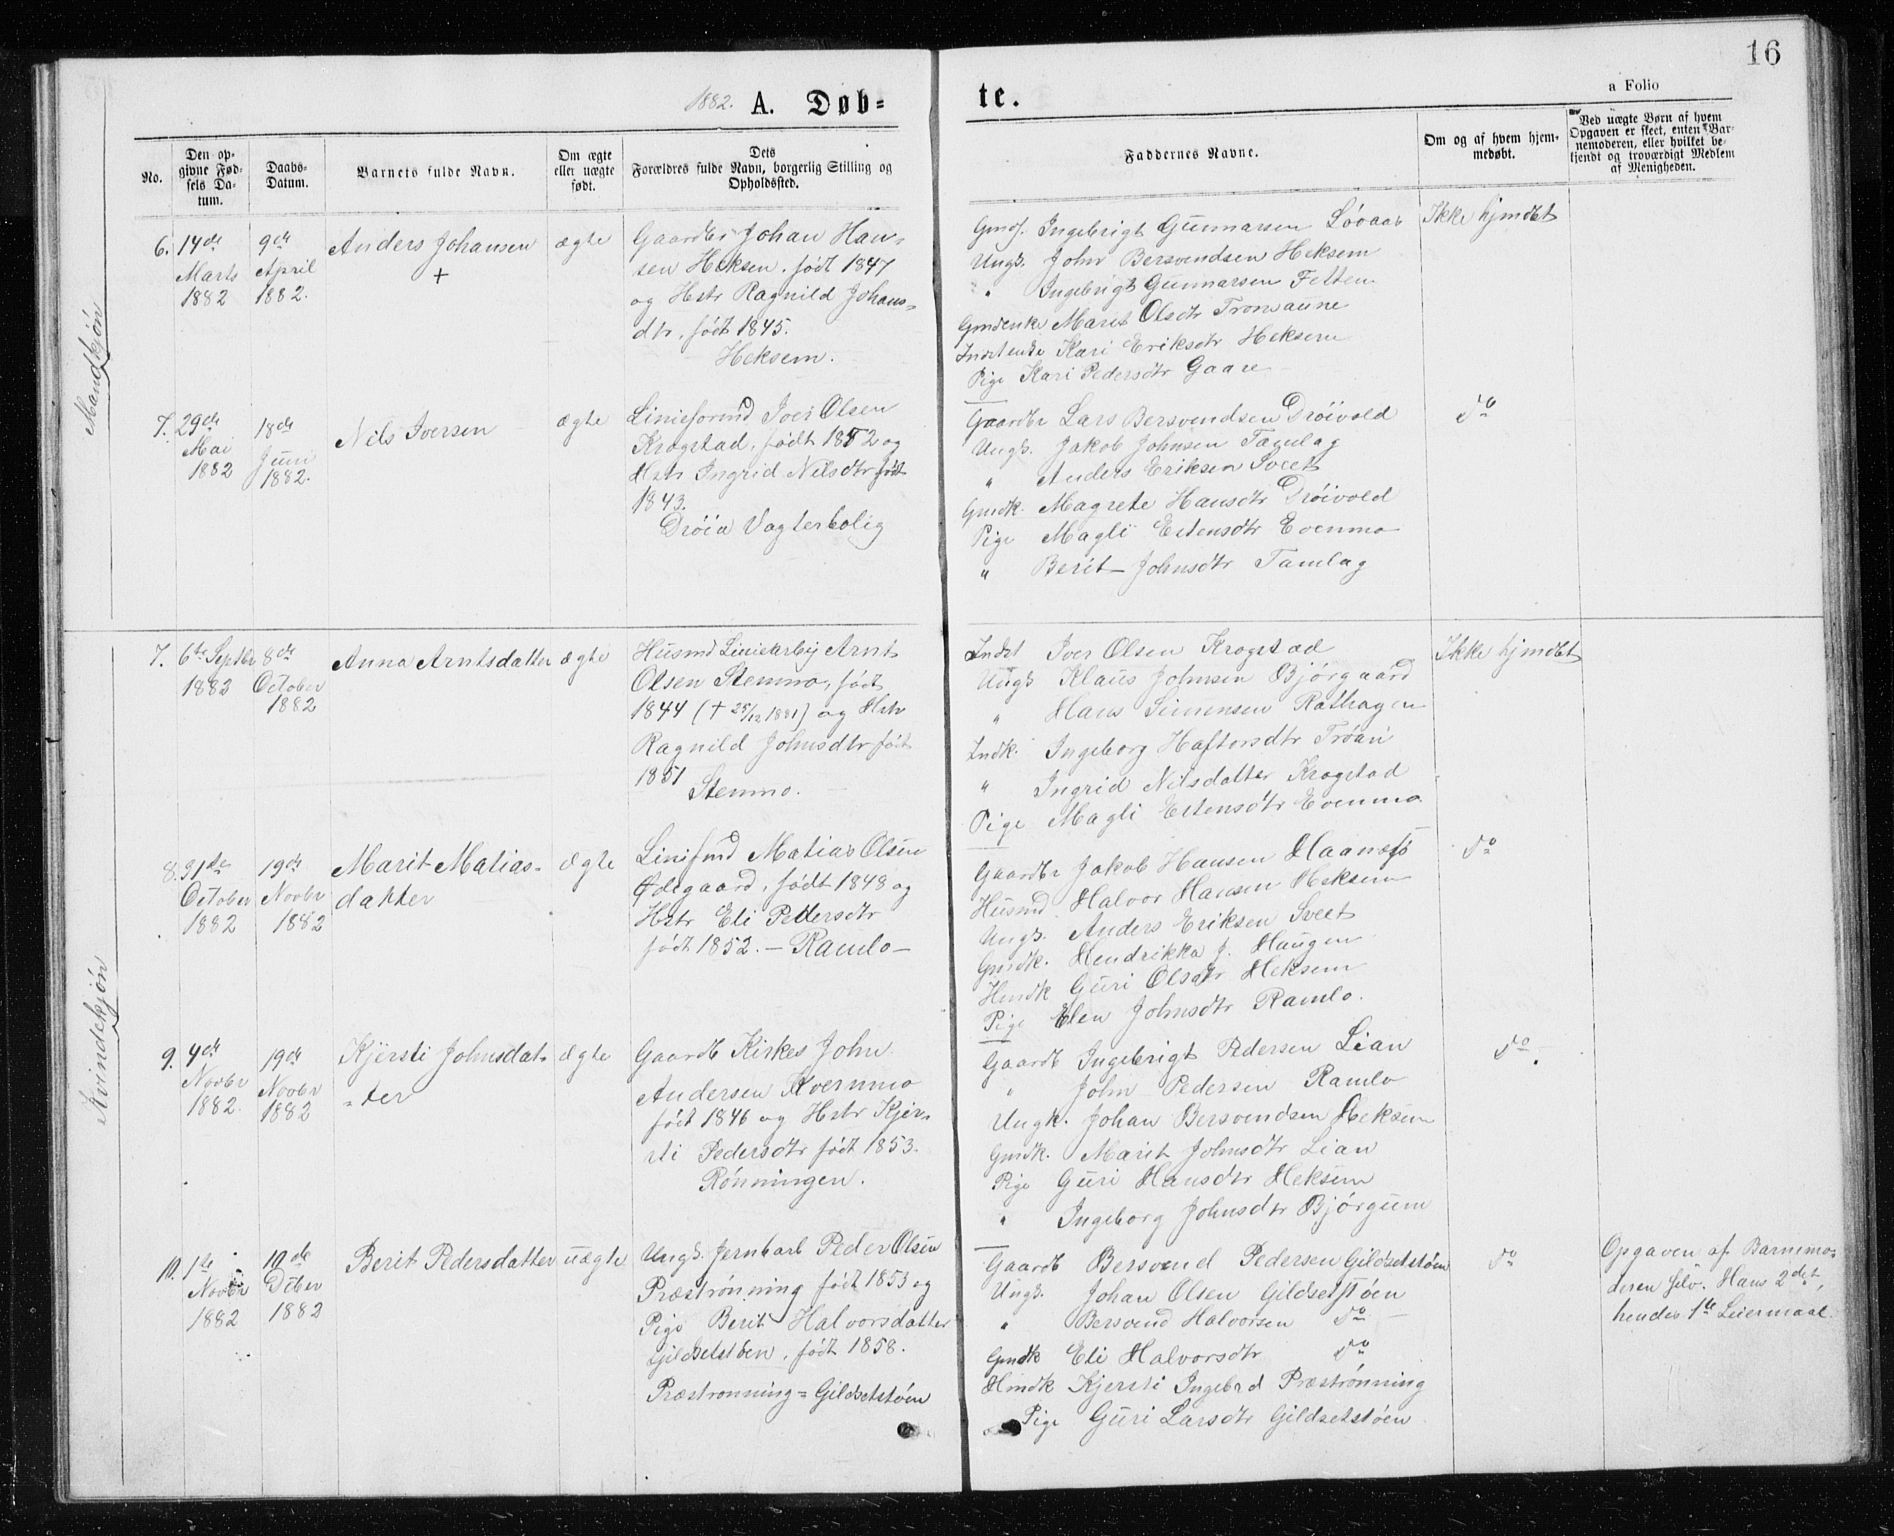 16
1882. A. Døb= te.
a Folio
No.
Den op-
givne Fød-
sels Da-
tum.
Daabs-
Datum.
Barnets fulde Navn.
Om ægte
eller uægte
født.
Dets
Forældres fulde Navn, borgerlig Stilling og
Opholdssted.
Faddernes Navne.
Om og af hvem hjem-
medøbt.
Ved uægte Børn af hvem
Opgaven er skeet, enten Bar-
nemoderen, eller hvilket be-
kjendt og troværdigt Medlem
af Menigheden.
Mandkjøn
6. 14de
Marts
1882
9de
April
1882.
Anders Johansen
+
ægte
Gaardbr Johan Han-
sen Heksem. født 1847
og Hstr Ragnild Johans-
dtr. født 1845.
Heksem.
Gmdf. Ingebrigt Gunnarsen Løvaas
Ungk. John Bersvendsen Heksem
" Ingebrigt Gunnarsen Fetten
Gmdenke Marit Olsdtr Tronsaune
Indstenke Kari Eriksdtr Heksem
Pige Kari Pedersdtr Gaare
Ikke hjmdbt
7. 29de
Mai
1882
18de
Juni
1882.
Nils Iversen
ægte
Linieformd Iver Olsen
Krogstad, født 1852 og
Hstr Ingrid Nilsdtr født
1843.
Drøia Vogterbolig
Gaardbr Lars Bersvendsen Drøivold
Ungk. Jakob Johnsen Tamlag
" Anders Eriksen Sveet
Gmdk. Magrete Hansdtr Drøivold
Pige Magli Estensdtr Evenmo
" Berit Johnsdtr Tamlag
do
Kvindekjøn
7. 6te Septbr
1882
8de
October
1882
Anna Arntsdatter
ægte
Husmd Liniearbij Arnt
Olsen Stenmo, født
1844 († 28/12 1881) og Hstr
Ragnild Johnsdtr født
1851
Stenmo.
Indst Iver Olsen Krogstad
Ungk Klaus Johnsen Bjørgaard
" Hans Simensen Rathagen
Indk. Ingeborg Haftorsdtr Trøan
" Ingrid Nilsdatter Krogstad
Pige Magli Estensdtr Evenmo
Ikke hjmdbt
8. 31te
October
1882
19de
Novbr
1882
Marit Matias-
datter
ægte
Linifmd Matias Olsen
Ødegaard, født 1848 og
Hstr Eli Pettersdtr
født 1852. - Ramlo -
Gaardbr Jakob Hansen Haanæsø
Husmd Halvor Hansen Heksem
Ungk. Anders Eriksen Sveet
Gmdk. Hendrikka J. Haugen
Hmdk Guri Olsdtr Heksem
Pige Elen Johnsdtr Ramlo.
do
9. 4de
Novbr
1882.
19de
Novbr
1882
Kjersti Johnsdat-
-ter
ægte
Gaardb Kirkes John
Andersen Kvernmo
født 1846 og Hstr Kjer-
sti Pedersdtr født 1853.
Rønningen.
Gaardb Ingebrigt Pedersen Lian
" John Pedersen Ramlo
Ungk. Johan Bersvendsen Heksem
Gmdk. Marit Johnsdtr Lian
Pige Guri Hansdtr Heksem
" Ingeborg Johnsdtr Bjørgum
do.
10. 1te
Novbr
1882
10de
Dcber
1882
Berit Pedersdatter
uægte
Ungk. Jernbarb Peder Olsen
Præstrønning født 1853 og
Pige Berit Halvorsdatter
Gildsetstøen. født 1858.
Præstrønning = Gildsetstøen
Gaardb Bersvend Pedersen Gildsetstøen
Ungk. Johan Olsen Gildsetstøen
" Bersvend Halvorsen do -
Gmdk Eli Halvorsdtr do
Hmdk Kjersti Ingebrd Præstrønning
Pige Guri Larsdtr Gildsetstøen
do
Opgaven af Barnemo-
deren selv. Hans 2det,
hendes 1te Leiermaal.